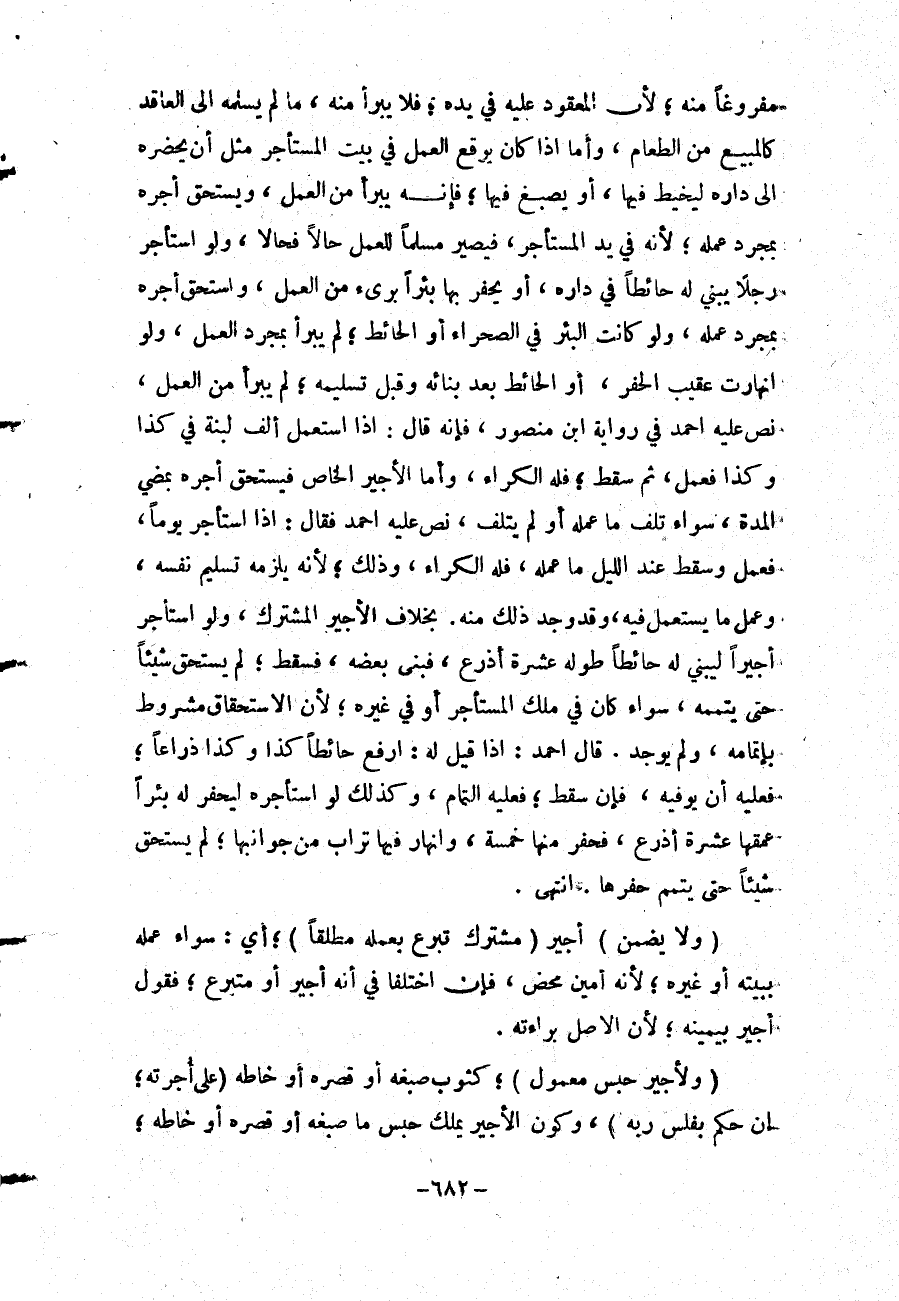 مفروغاً منه ؛ لأن المعقود عليه في يده ؛ فلا يبرأ منه ، ما لم يسلمه الى العاقد
كالمبيع من الطعام ، وأما اذا كان يوقع العمل في بيت المستأجر مثل أن يحضره
الى داره ليخيط فيها ، أو يصبغ فيها ؛ فإنه يبرأ من العمل ، ويستحق أجره
بمجرد عمله ؛ لأنه في يد المستأجر ، فيصير مسلماً للعمل حالاً فحالا ، ولو استأجر
رجلًا يبني له حائطاً في داره ، أو يحفر بها بئراً برىء من العمل ، واستحق أجره
بمجرد عمله ، ولو كانت البئر في الصحراء أو الحائط ؛ لم يبرأ بمجرد العمل ، ولو
انهارت عقيب الحفر ، أو الحائط بعد بنائه وقبل تسليمه ؛ لم يبرأ من العمل ،
نص عليه احمد في رواية ابن منصور ، فإنه قال : اذا استعمل ألف لبنة في كذا
وكذا فعمل ، ثم سقط ؛ فله الكراء ، وأما الأجير الخاص فيستحق أجره بمضي
المدة ، سواء تلف ما عمله أو لم يتلف ، نص عليه احمد فقال : اذا استأجر يوماً ،
فعمل وسقط عند الليل ما عمله ، فله الكراء ، وذلك ؛ لأنه يلزمه تسليم نفسه ،
وعمل ما يستعمل فيه ، وقد وجد ذلك منه . بخلاف الأجير المشترك ، ولو استأجر
أجيراً ليبني له حائطاً طوله عشرة أذرع ، فبنى بعضه ، فسقط ؛ لم يستحق شيئاً
حتى يتممه ، سواء كان في ملك المستأجر أو في غيره ؛ لأن الاستحقاق مشروط
بإتمامه ، ولم يوجد . قال احمد : اذا قيل له : ارفع حائطاً كذا وكذا ذراعاً ؛
فعليه أن يوفيه ، فإن سقط ؛ فعليه التمام ، وكذلك لو استأجره ليحفر له بئراً
عمقها عشرة أذرع ، فحفر منها خمسة ، وانهار فيها تراب من جوانبها ؛ لم يستحق
شيئاً حتى يتمم حفرها . انتهى .
( ولا يضمن ) أجير ( مشترك تبرع بعمله مطلقاً ) ؛ أي : سواء عمله
ببيته أو غيره ؛ لأنه أمين محض ، فإن اختلفا في أنه أجير أو متبرع ؛ فقول
أجير بيمينه ؛ لأن الاصل براءته .
( ولأجير حبس معمول ) ؛ كثوب صبغه أو قصره أو خاطه ( على أجرته ؛
ان حكم بفلس ربه ) ، وكون الأجير يملك حبس ما صبغه أو قصره أو خاطه ؛
-٦٨٢-